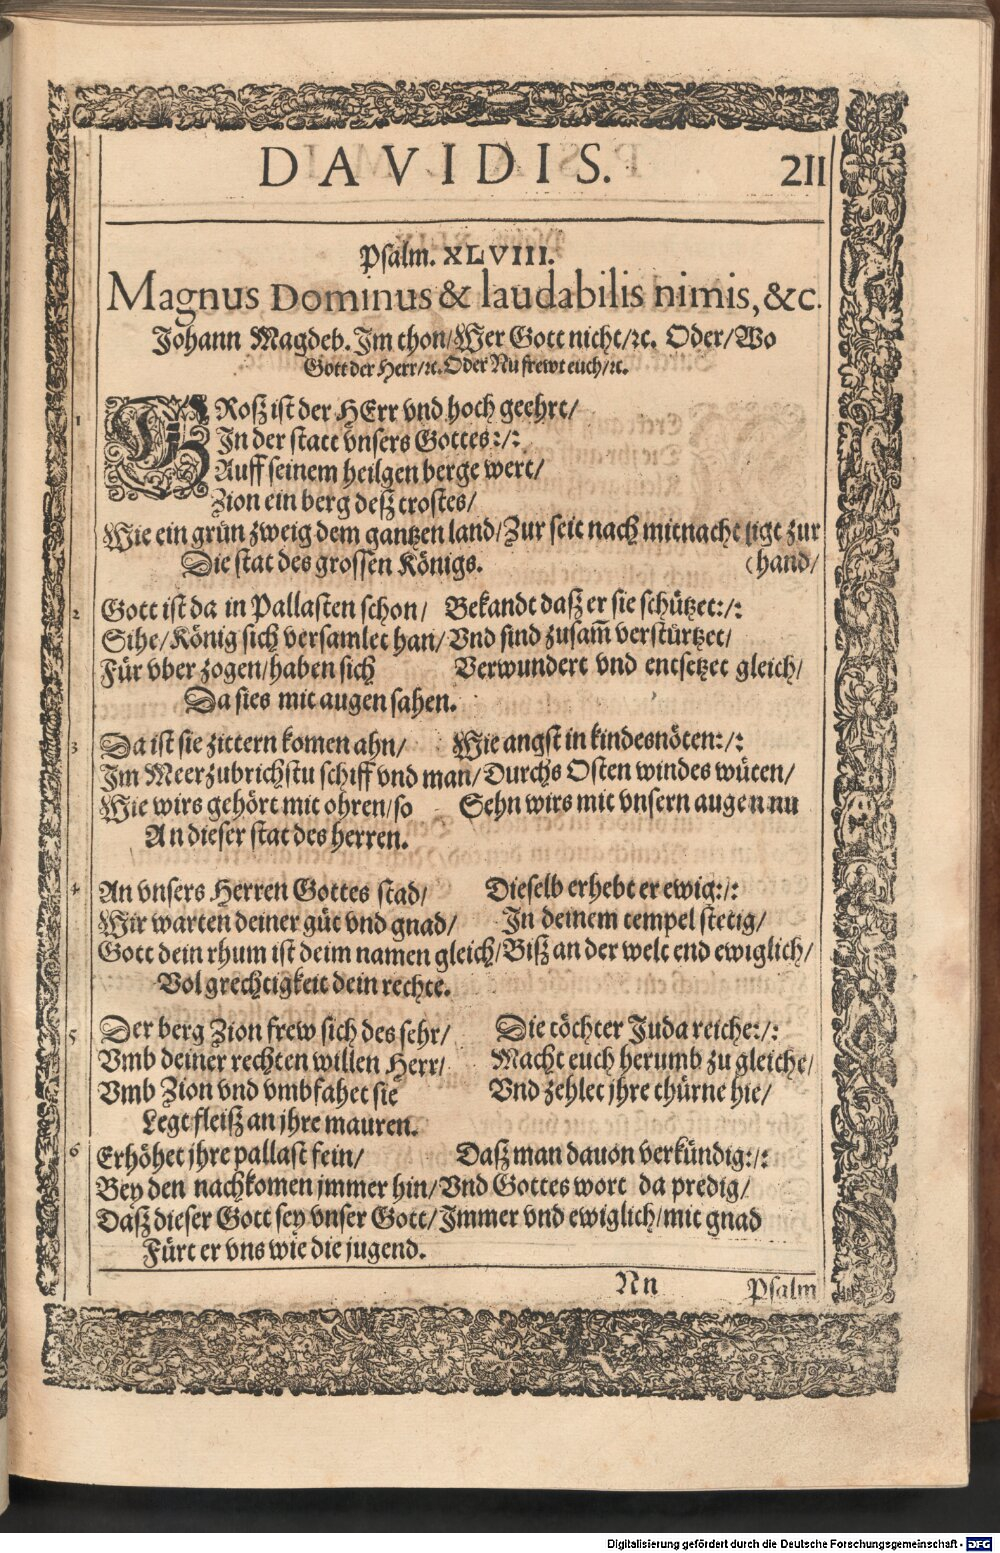 DAVIDIS. 211
Psalm. XLVIII.
Magnus Dominus & laudabilis nimis, &c.
Johann Magdeb. Im thon/Wer Gott nicht/ꝛc. Oder/Wo
Gott der Herr/ꝛc. Oder Nu frewt euch/ꝛc.
1 GRoß ist der HErr vnd hoch geehrt/
In der statt vnsers Gottes:/:
Auff seinem heilgen berge wert/
Zion ein berg deß trostes/
Wie ein grün zweig dem gantzen land/Zur seit nach mitnacht ligt zur
Die stat des grossen Königs. (hand/
2 Gott ist da in Pallasten schon/ Bekandt daß er sie schützet:/:
Sihe/König sich versamlet han/Vnd sind zusam̃ verstürtzet/
Für vber zogen/haben sich Verwundert vnd entsetzet gleich/
Da sies mit augen sahen.
3 Da ist sie zittern komen ahn/ Wie angst in kindesnöten:/:
Im Meer zubrichstu schiff vnd man/Durchs Osten windes wüten/
Wie wirs gehört mit ohren/so Sehn wirs mit vnsern augen nu
An dieser stat des herren.
4 An vnsers Herren Gottes stad/ Dieselb erhebt er ewig:/:
Wir warten deiner güt vnd gnad/ In deinem tempel stetig/
Gott dein rhum ist deim namen gleich/Biß an der welt end ewiglich/
Vol grechtigkeit dein rechte.
5 Der berg Zion frew sich des sehr/ Die töchter Juda reiche:/:
Vmb deiner rechten willen Herr/ Macht euch herumb zu gleiche/
Vmb Zion vnd vmbfahet sie Vnd zehlet jhre thürne hie/
Legt fleiß an jhre mauren.
6 Erhöhet jhre pallast fein/ Daß man dauon verkündig:/:
Bey den nachkomen jmmer hin/Vnd Gottes wort da predig/
Daß dieser Gott sey vnser Gott/Immer vnd ewiglich/mit gnad
Fürt er vns wie die jugend.
Nn Psalm
Digitalisierung gefördert durch die Deutsche Forschungsgemeinschaft - DFG